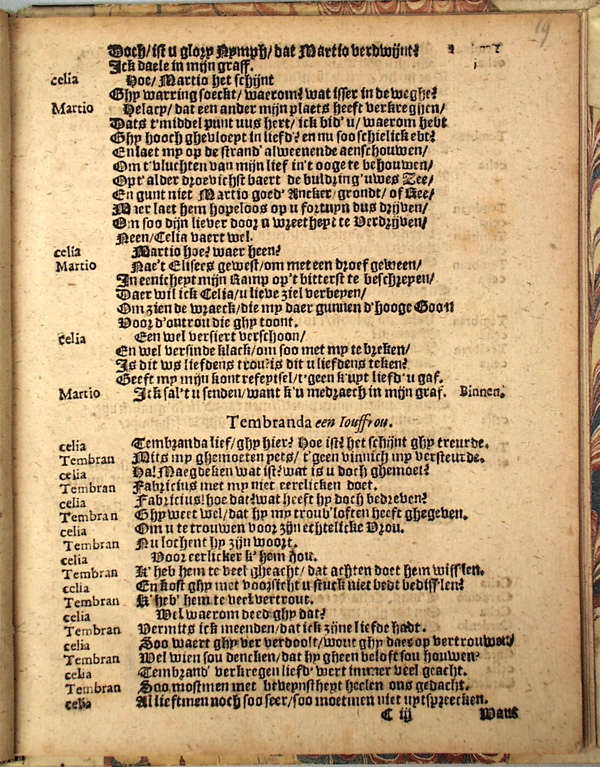 19
Doch/ ist u glory Nymph/ dat Martio verdwijnt?
Ick daele in mijn graff.
celia Hoe/ Martio het schijnt
Ghy warring soeckt/ waerom? wat isser in de weghe?
Martio Helacy/ dat een ander mijn plaets heeft verkreghen/
Dats t'middel punt uus hert/ ick bid' u/ waerom hebt
Ghy hooch ghevloeyt in liefd? en nu soo schielick ebt?
En laet my op de strand' al weenende aenschouwen/
Om t'vluchten van mijn lief in 't ooge te behouwen/
Op't alder droevichst baert de buldring' uwes Zee/
En gunt niet Martio goed' Ancker/ grondt/ of Ree/
Maer laet hem hopeloos op u fortuyn dus drijven/
Om soo dijn liever door u wreetheyt te Verdrijven/
Neen/ Celia vaert wel.
celia Martio hoe? waer heen?
Martio Nae't Elisees gewest/ om met een droef geween/
In eenicheyt mijn Ramp op't bitterst te beschreyen/
Daer wil ick Celia/ u lieve ziel verbeyen/
Om zien de wraeck/ die my daer gunnen d'hooge Goon
Voor d'ontrou die ghy toont.
celia Een wel versiert verschoon/
En wel versinde klack/ om soo met my te breken/
Is dit ws liefdens trou? is dit u liefdens teken?
Geeft my mijn kont refeytsel/ t'geen k'uyt liefd' u gaf.
Martio Ick sal't u senden/ want k'u medraech in mijn graf. Binnen.
Tembranda een Iouffrou.
celia Tembranda lief/ ghy hier? Hoe ist? het schijnt ghy treurde.
Tembran Mits my ghemoeten yets/ t'geen vinnich my versteurde.
celia Ha! Maegdeken wat ist? wat is u doch ghemoet?
Tembran Fabricius met my niet eerelicken doet.
celia Fabricius! hoe dat? wat heeft hy doch bedreven?
Tembran Ghy weet wel/ dat hy my troub'loften heeft ghegeven.
celia Om u te trouwen voor zijn echtelicke Vrou.
Tembran Nu lochent hy zijn woort.
celia Voor eerlicker k'hem hou.
Tembran K'heb hem te veel gheacht/ dat achten doet hem wiss'len.
celia En kost ghy met voorsicht u stuck niet bedt bediss'len?
Tembran K'heb' hem te veel vertrout.
celia Wel waerom deed ghy dat?
Tembran Vermits ick meenden/ dat ick zijne liefde hadt.
celia Soo waert ghy ver verdoolt/ wout ghy daer op vertrouwen/
Tembran Wel wien sou dencken/ dat hy gheen beloft sou houwen?
celia Tembrand' verkregen liefd' wert immer veel geacht.
Tembran Soo mostmen met beveynstheyt heelen ons gedacht.
celia Al lieftmen noch soo seer/ soo moetmen niet uytspreecken.
C iij Want